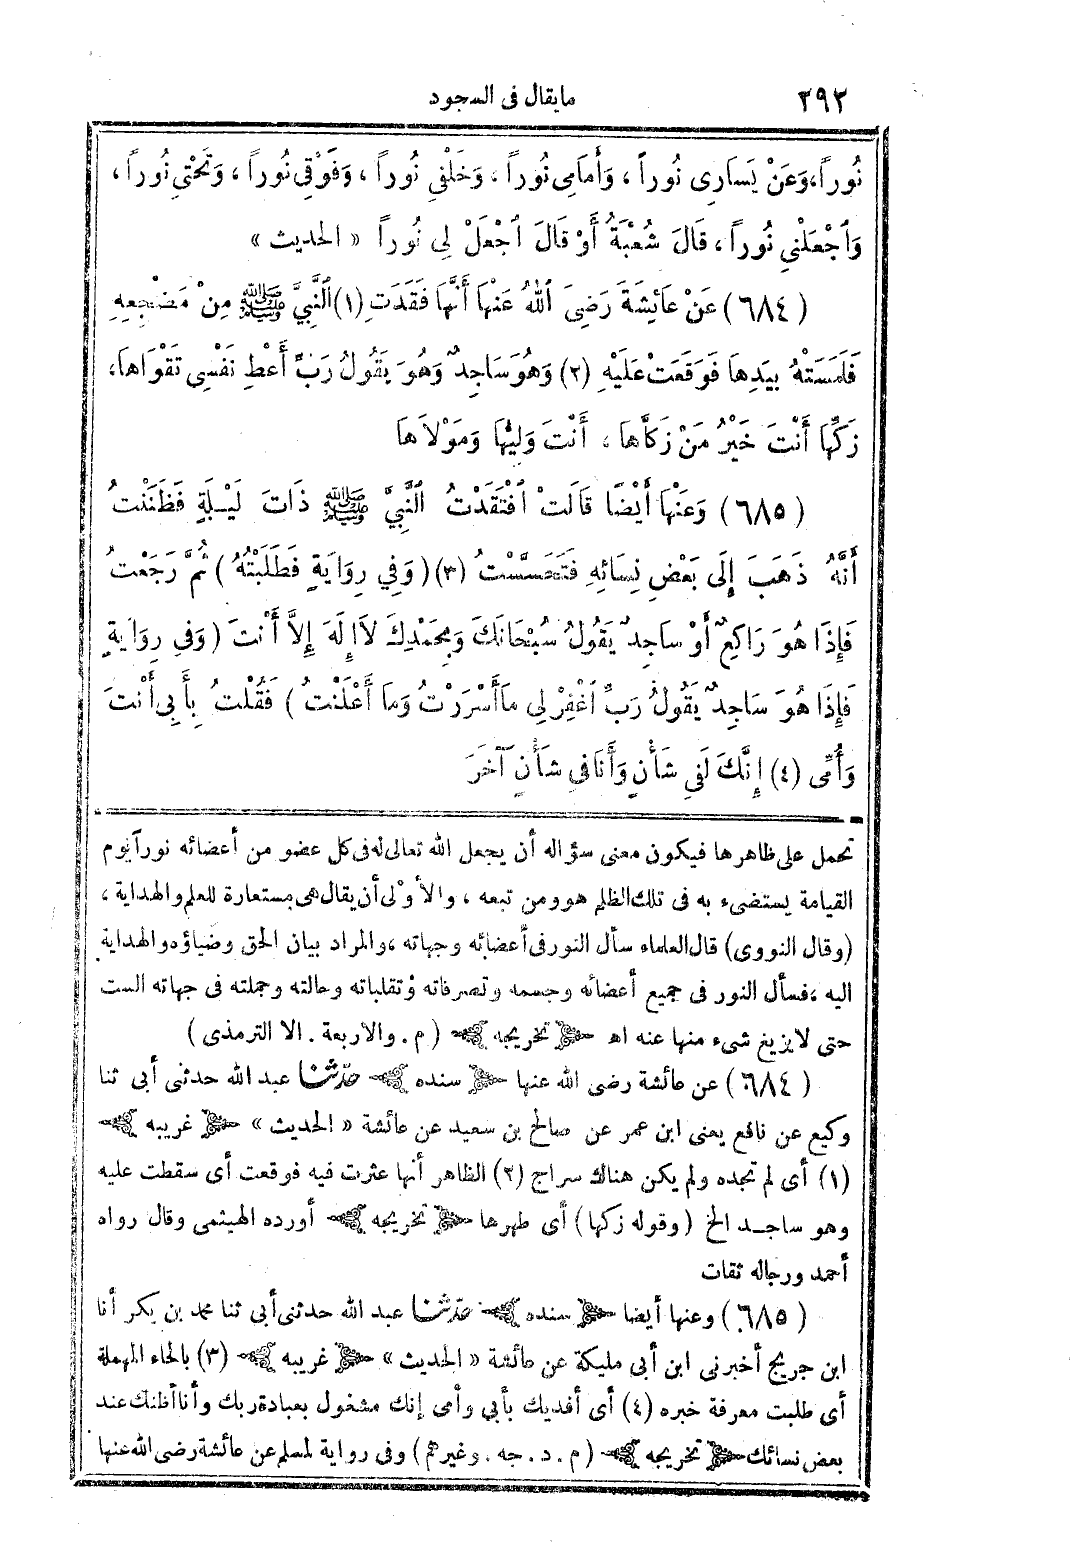 ٢٩٢ مايقال فى السجود
نُوراً، وَعَنْ يَسَارِى نُوراً ، وَأَمَامِى نُوراً ، وَخَلْفِى نُوراً ، وَفَوْقِى نُوراً ، وَتَحْتِى نُوراً ،
وَاجْعَلْنِى نُوراً ، قَالَ شُعْبَةُ أَوْ قَالَ اجْعَلْ لِى نُوراً « الحديث »
(٦٨٤) عَنْ عَائِشَةَ رَضِىَ اللهُ عَنْهَا أَنَّهَا فَقَدَتِ (١) النَّبِيَّ ﷺ مِنْ مَضْجِعِهِ
فَلَمَسَتْهُ بِيَدِهَا فَوَقَعَتْ عَلَيْهِ (٢) وَهُوَ سَاجِدٌ وَهُوَ يَقُولُ رَبِّ أَعْطِ نَفْسِى تَقْوَاهَا،
زَكِّهَا أَنْتَ خَيْرُ مَنْ زَكَّاهَا ، أَنْتَ وَلِيُّهَا وَمَوْلاَهَا
(٦٨٥) وَعَنْهَا أَيْضًا قَالَتْ افْتَقَدْتُ النَّبِيَّ ﷺ ذَاتَ لَيْلَةٍ فَظَنَنْتُ
أَنَّهُ ذَهَبَ إِلَى بَعْضِ نِسَائِهِ فَتَحَسَّسْتُ (٣) (وَفِي رِوَايَةٍ فَطَلَبْتُهُ) ثُمَّ رَجَعْتُ
فَإِذَا هُوَ رَاكِعٌ أَوْ سَاجِدٌ يَقُولُ سُبْحَانَكَ وَبِحَمْدِكَ لاَ إِلَهَ إِلاَّ أَنْتَ (وَفِى رِوَايَةٍ
فَإِذَا هُوَ سَاجِدٌ يَقُولُ رَبِّ اغْفِرْ لِى مَا أَسْرَرْتُ وَمَا أَعْلَنْتُ) فَقُلْتُ بِأَبِى أَنْتَ
وَأُمِّى (٤) إِنَّكَ لَفِى شَأْنٍ وَأَنَا فِى شَأْنٍ آخَرَ
تحمل على ظاهرها فيكون معنى سؤاله أن يجعل الله تعالى له فى كل عضو من أعضائه نوراً يوم
القيامة يستضىء به فى تلك الظلم هو ومن تبعه ، والأوْلى أن يقال هى مستعارة للعلم والهداية ،
(وقال النووى) قال العلماء سأل النور فى أعضائه وجهاته ، والمراد بيان الحق وضياؤه والهداية
اليه ، فسأل النور فى جميع أعضائه وجسمه وتصرفاته وتقلباته وحالته وجملته فى جهاته الست
حتى لايزيغ شىء منها عنه اه تخريجه (م . والاربعة . الا الترمذى)
(٦٨٤) عن عائشة رضى الله عنها سنده حدّثنا عبد الله حدثنى أبى ثنا
وكيع عن نافع يعنى ابن عمر عن صالح بن سعيد عن عائشة « الحديث » غريبه
(١) أى لم تجده ولم يكن هناك سراج (٢) الظاهر أنها عثرت فيه فوقعت أى سقطت عليه
وهو ساجد الخ (وقوله زكها) أى طهرها تخريجه أورده الهيثمى وقال رواه
أحمد ورجاله ثقات
(٦٨٥) وعنها أيضا سنده حدّثنا عبد الله حدثنى أبى ثنا محمد بن بكر أنا
ابن جريج أخبرنى ابن أبى مليكة عن عائشة « الحديث » غريبه (٣) بالحاء المهملة
أى طلبت معرفة خبره (٤) أى أفديك بأبى وأمى إنك مشغول بعبادة ربك وأنا أظنك عند
بعض نسائك تخريجه (م . د . جه . وغيرهم) وفى رواية لمسلم عن عائشة رضى الله عنها